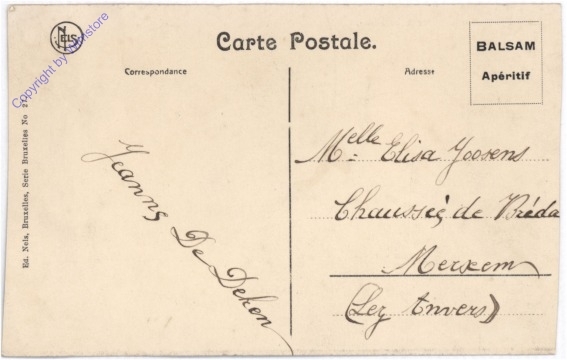 NELS
Copyright by
Carte Postale.
BALSAM
Apéritif
Correspondance
Adresse
Ed. Nels, Bruxelles, Serie Bruxelles No
Jeanne De Deken
Melle Elisa Joosens
Chaussée de Bréda
Merxem
(Lez Anvers)